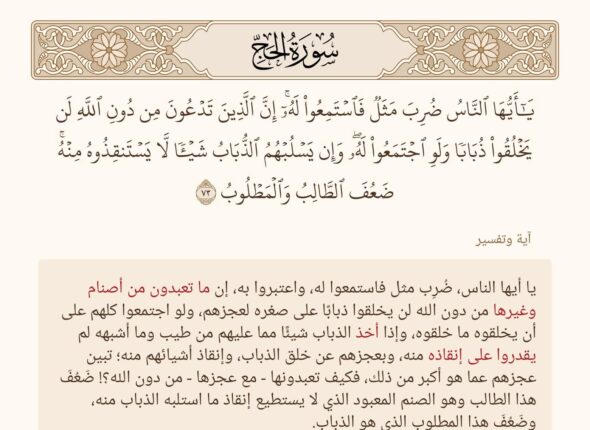 سُورَةُ الحَجّ
يَـٰٓأَيُّهَا ٱلنَّاسُ ضُرِبَ مَثَلٞ فَٱسۡتَمِعُواْ لَهُۥٓۚ إِنَّ ٱلَّذِينَ تَدۡعُونَ مِن دُونِ ٱللَّهِ لَن
يَخۡلُقُواْ ذُبَابٗا وَلَوِ ٱجۡتَمَعُواْ لَهُۥۖ وَإِن يَسۡلُبۡهُمُ ٱلذُّبَابُ شَيۡـٔٗا لَّا يَسۡتَنقِذُوهُ مِنۡهُۚ
ضَعُفَ ٱلطَّالِبُ وَٱلۡمَطۡلُوبُ ٧٣
آية وتفسير
يا أيها الناس، ضُرِب مثل فاستمعوا له، واعتبروا به، إن ما تعبدون من أصنام
وغيرها من دون الله لن يخلقوا ذبابًا على صغره لعجزهم، ولو اجتمعوا كلهم على
أن يخلقوه ما خلقوه، وإذا أخذ الذباب شيئًا مما عليهم من طيب وما أشبهه لم
يقدروا على إنقاذه منه، وبعجزهم عن خلق الذباب، وإنقاذ أشيائهم منه؛ تبين
عجزهم عما هو أكبر من ذلك، فكيف تعبدونها - مع عجزها - من دون الله؟! ضَعُفَ
هذا الطالب وهو الصنم المعبود الذي لا يستطيع إنقاذ ما استلبه الذباب منه،
وضَعُفَ هذا المطلوب الذي هو الذباب.